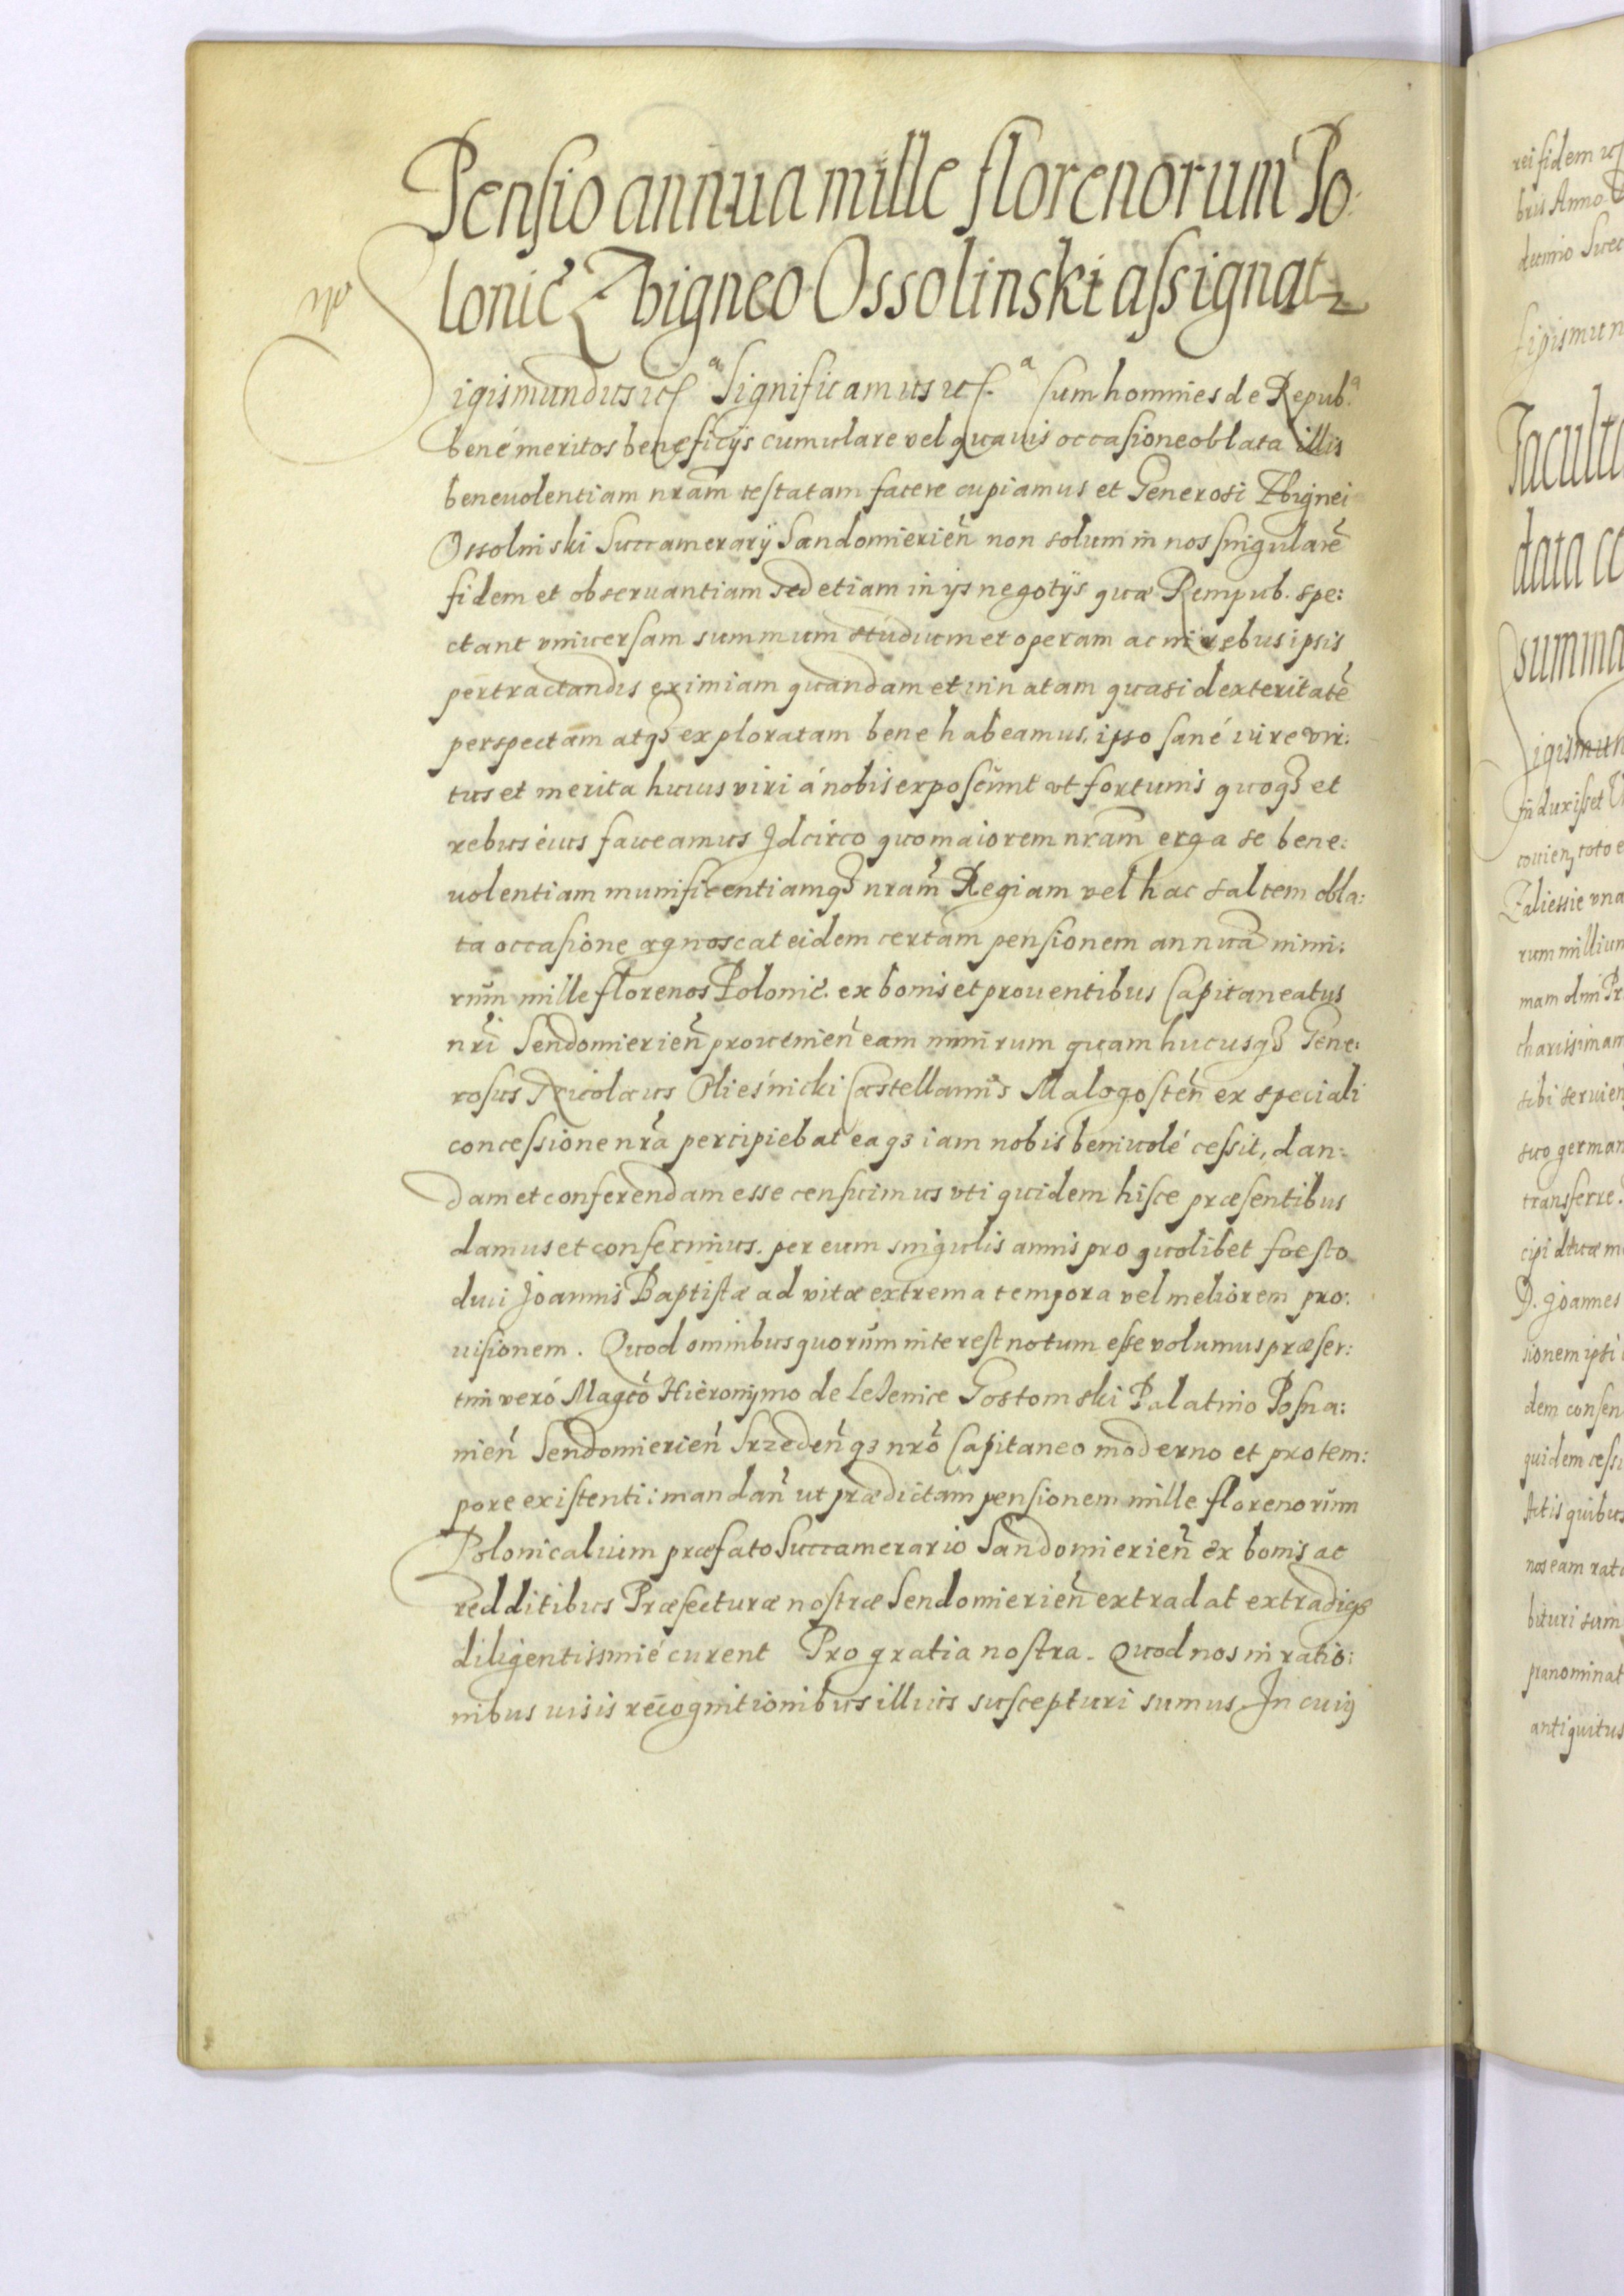 Pensio annua mille florenorum Po:
lonic̃ Zbigneo Ossolinski assignatr
Sigismundus etc.ª Significamus etc.ª Cum homines de Repub.ª
bené meritos beneficÿs cumulare vel quauis occasione oblata illis
beneuolentiam nr̃am testatam facere cupiamus et Generosi Zbignei
Ossolinski Succamerarÿ Sandomirień non solum in nos singularē
fidem et obseruantiam sed etiam in ijs negotÿs quæ Rempub. spe:
ctant vniuersam summum studium et operam ac in rebus ipsis
pertractandis eximiam quandam et innatam quasi dexteritatē
perspectam atqȝ exploratam bene habeamus. ipso sané iure vir:
tus et merita huius viri á nobis exposcunt vt fortunis quoqȝ et
rebus éius faueamus Idcirco quo maiorem nr̃am erga se bene:
uolentiam munificentiamqȝ nr̃am Regiam vel hac saltem obla:
ta occasione agnoscat eidem certam pensionem annuā nimi:
rum mille florenos Polonic̃. ex bonis et prouentibus Capitaneatus
nr̃i Sendomierień prouenień eam nimirum quam hucusqȝ Gene:
rosus Nicolaus Olieśnicki Castellanus Malogosteń ex speciali
concessione nr̃a percipiebat eaqȝ iam nobis beniuolé cessit, dan-
dam et conferendam esse censuimus vti quidem hisce præsentibus
damus et conferimus. per eum singulis annis pro quolibet foesto
diui Joannis Baptistæ ad vitæ extrema tempora vel meliorem pro:
uisionem. Quod omnibus quorum interest notum esse volumus præser:
tim veró Magco Hieronÿmo de Leźenice Gostomski Palatino Posna:
nień Sendomierień Srzedeńqȝ nr̃o Capitaneo moderno et pro tem:
pore existenti: mandań ut prædictam pensionem mille florenorum
Polonicalium præfato Succamerario Sandomierień ex bonis ac
redditibus Præfecturæ nostræ Sendomierień extradat extradiqȝ
diligentissimé curent Pro gratia nostra. Quod nos in ratio:
nibus uisis recognitionibus illius suscepturi sumus In cuiꝰ
rei fidem
bris Anno
Sigismun
Faculta
data
summa
Sigismun
induxisset
toto e
Zaliessie vna
rum millium
mam
charissimam
sibi seruień
suo german
transferre.
D. Joannes
sionem ipsi
dem consen
quidem cessi
Actis quibus
nos eam rata
bituri sum
prænominat
antiquitus